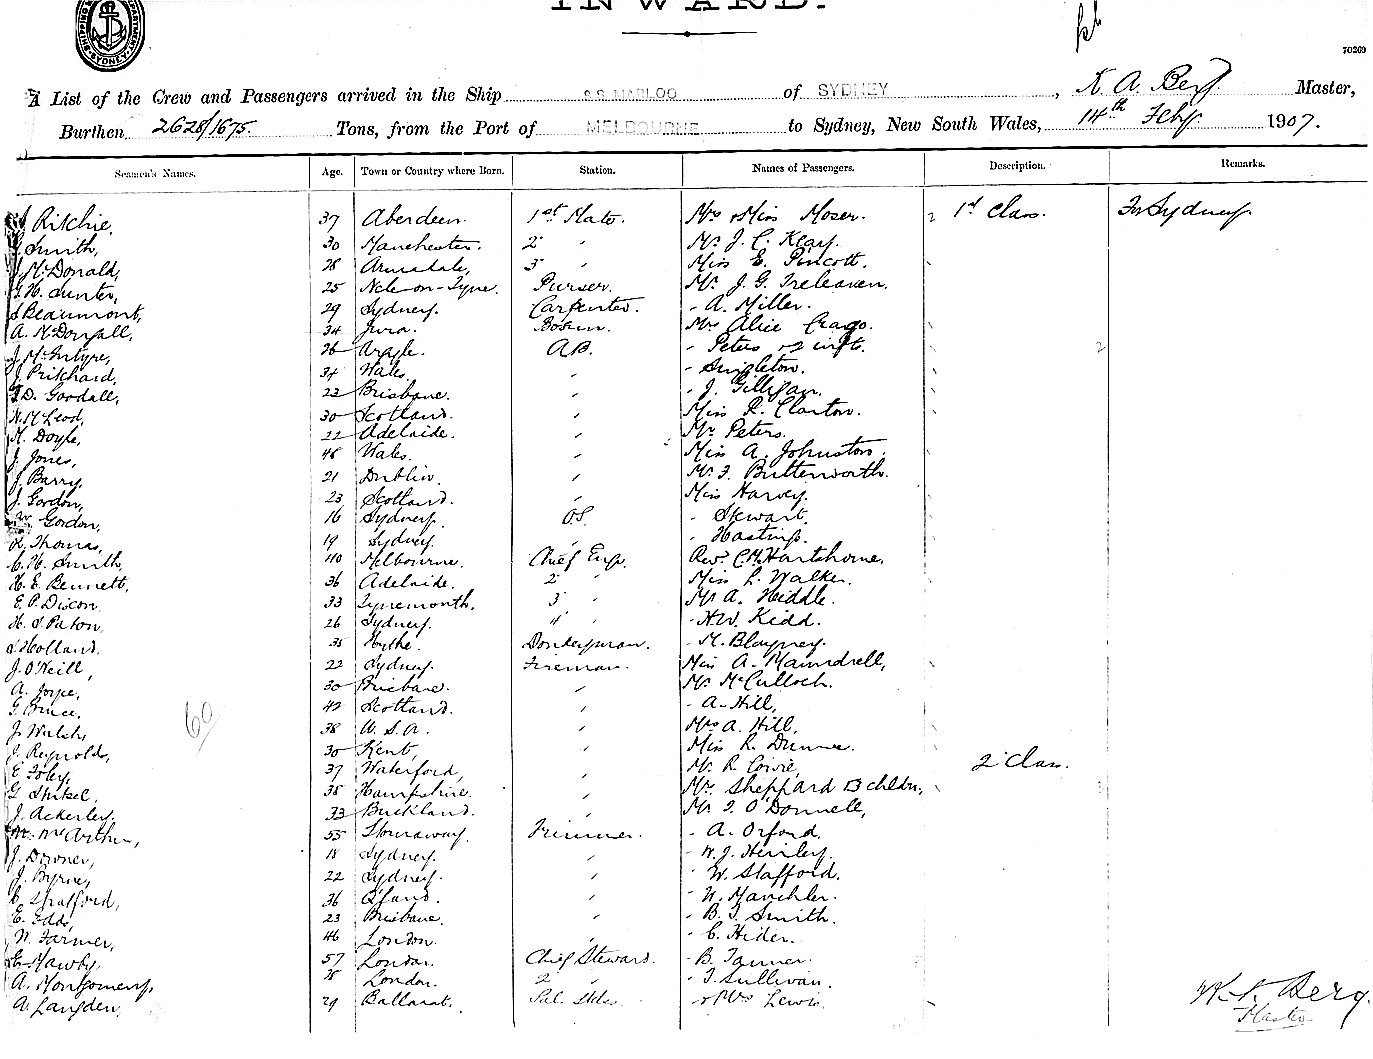 INWARD.
SHIPPING DEPARTMENT SYDNEY
70269
A List of the Crew and Passengers arrived in the Ship S.S. MARLOO of SYDNEY, K. A. Berg Master,
Burthen 2628/1675 Tons, from the Port of MELBOURNE to Sydney, New South Wales, 14th Feby 1907.
Seamen's Names. Age. Town or Country where Born. Station. Names of Passengers. Description. Remarks.
Ritchie, 37 Aberdeen. 1st Mate. Mrs & Miss Moser. 2 1st Class. For Sydney.
Smith, 30 Manchester. 2 " Mr J. C. Keay.
J McDonald, 28 Armadale, 3 " Miss E. Pincott.
G H. Hunter, 25 Nctle-on-Tyne. Purser. Mr J. G. Treleaven.
Beaumont, 29 Sydney. Carpenter. - A. Miller.
A. McDougall, 34 Jura. Bosun. Mrs Alice Crago.
J. McIntyre, 26 Argyle. AB. - Peters & 2 infts. 2
J. Pritchard, 34 Wales. " - Singleton.
D. Goodall, 22 Brisbane. " - J. Gilligan.
N. McLeod, 30 Scotland. " Miss R. Clanton.
M. Doyle, 22 Adelaide. " Mr Peters.
J. Jones, 48 Wales. " Miss A. Johnston.
J. Barry, 21 Dublin. " Mr F. Butterworth.
J. Gordon, 23 Scotland. " Miss Harvey.
Gordon, 16 Sydney. OS. - Stewart.
R. Thomas, 19 Sydney. " - Hastings.
C. H. Smith, 40 Melbourne. Chief Eng. Rev. C. M. Hartshorne.
H. E. Bennett, 36 Adelaide. 2 " Miss L. Walker.
E. P. Dixon. 33 Tynemouth. 3 " Mr A. Heddle.
H. S Paton, 26 Sydney. 4 " - H W. Kidd.
Holland. 35 Hythe. Donkeyman. - M. Blayney.
J. O'Neill, 22 Sydney. Fireman. Miss A. Maundrell,
A. Joyce, 30 Brisbane. " Mr McCulloch.
G. Bruce, 42 Scotland. " - A. Hill,
J. Walsh, 38 U.S.A. " Mrs A. Hill,
J. Reynolds, 30 Kent, " Miss R. Dunne.
E. Foley, 37 Waterford, " Mr R. Cowie, 2 Class.
G. 38 Hampshire. " Mrs Sheppard & 3 chldrn,
J. Ackerley. 33 Buckland. " Mr F. O'Donnell,
McArthur, 55 Stornaway. Trimmer. - A. Orford.
J. Downer, 18 Sydney. " - W. J. Henley.
J. Byrne, 22 Sydney. " - W. Stafford.
C. Strafford, 36 " - H. Manchler.
E. Edds, 23 Brisbane. " - B. J. Smith.
W. Farmer, 46 London. " - C. Hider.
E. Mawby, 57 London. Chief Steward. - B. Tanner.
A. Montgomery, 28 London. 2 " - J. Sullivan.
A. Langden, 29 Ballarat. - & Mrs Lewis.
60
K. A. Berg.
Master